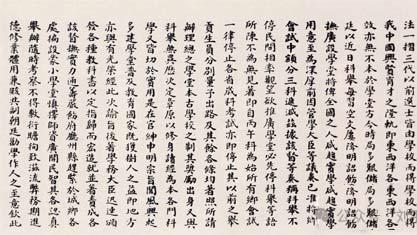 法一指三代以前選士皆由學校而得學校得
我中國興賢育才之隆軌即東西洋各國
效亦無不本於學堂方今時局多艱儲
廷以近日科舉每習空文屢降明詔飭
撫廣設學堂將俾全國之人咸趨實學以備任使
用意至為深厚前因管學大臣等議奏已准將鄉
會試中額分三科遞減茲據該督等奏稱科舉不
停民間相率觀望欲推廣學堂必先停科舉等語
所陳不為無見著即自丙午科為始所有鄉會試
一律停止各省歲科考試亦即停止其以前之舉
貢生員分別量予出路及其餘各條均著照所請
辦理總之學堂本古學校之制其獎勵出身又與
科舉無異歷次定章原以修身讀經為本各門科
學又皆切於實用是在官紳申明宗旨聞風興起
多建學堂普及教育國家既獲樹人之益即地方
亦與有光榮經此次諭旨後著學務大臣迅速頒
發各種教科書以定指歸而宏造就並著責成各
該督撫實力通籌嚴飭府廳州縣趕緊於城鄉各
處遍設蒙小學堂慎擇師資廣開民智其各認真
舉辦隨時考察不得敷衍瞻徇致滋流弊務期進
德修業體用兼賅共副朝廷勸學作人之至意欽此